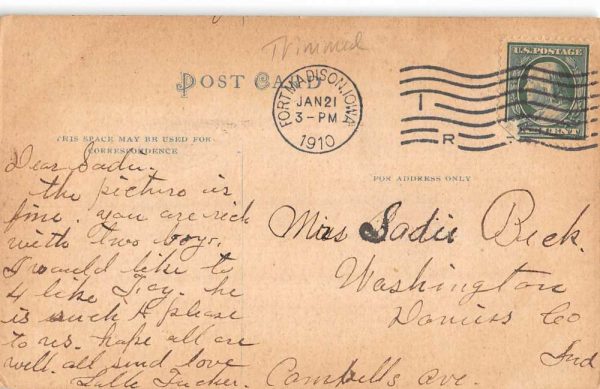 Trimmed
POST CARD
FORT MADISON, IOWA
JAN 21
3-PM
1910
I
R
U.S. POSTAGE
CENT
THIS SPACE MAY BE USED FOR
CORRESPONDENCE
FOR ADDRESS ONLY
Dear Sadie.
the picture is
fine. you are rich
with two boys.
I would like to
like he
is such A please
to us. hope all are
well. all send love
Tucker.
Mrs Sadie Beck.
Washington
Daviess Co
Ind
Campbells Ave.